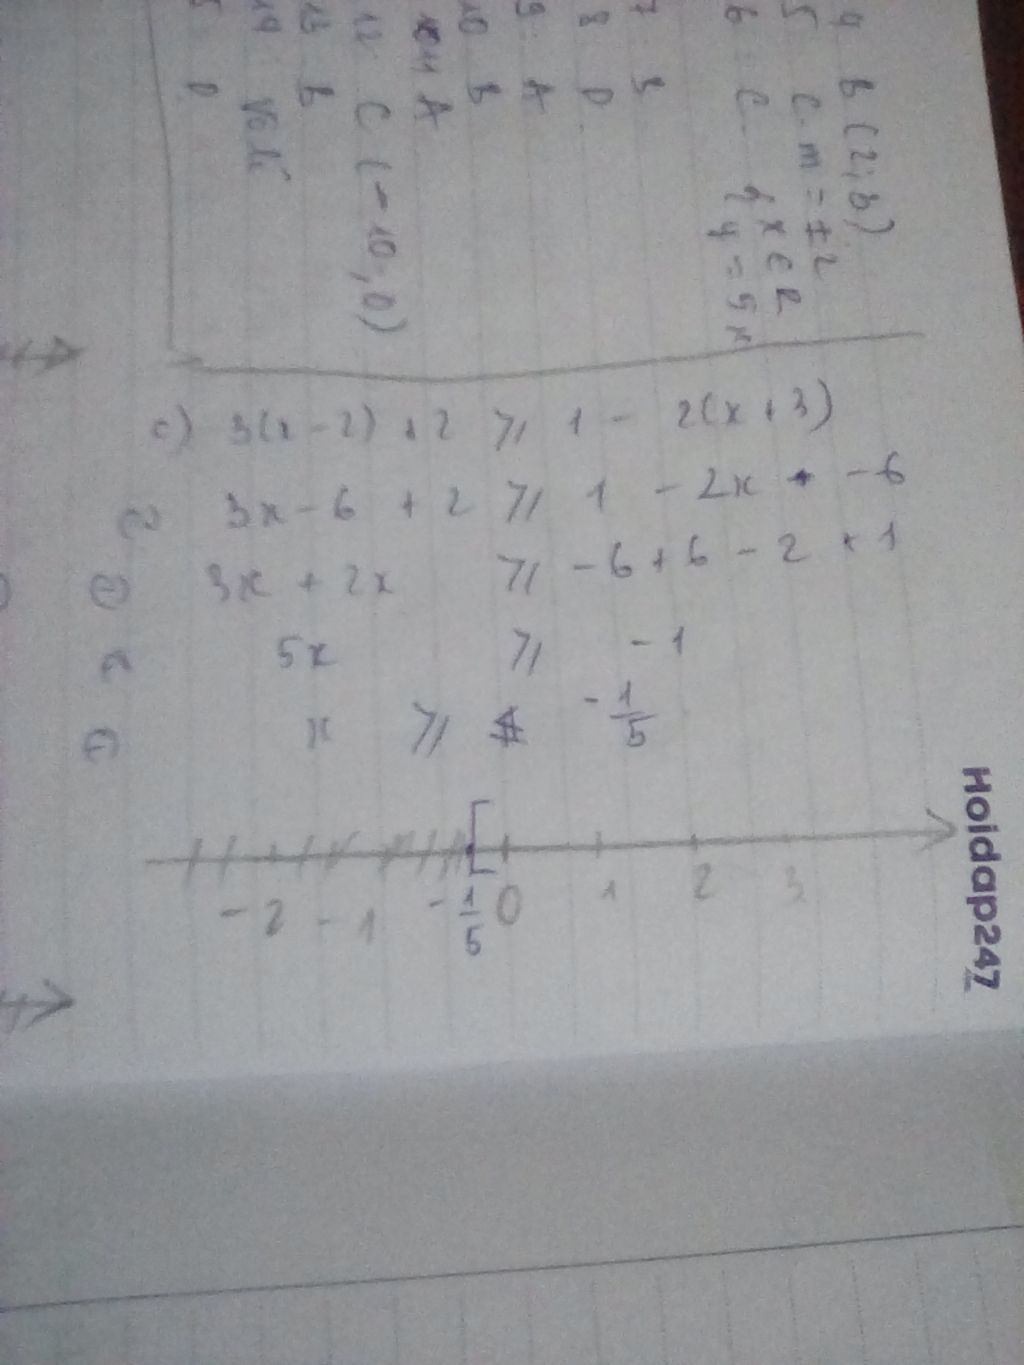 4 B (2;b)
5 C. m = ±2
6. C. { x ∈ R
y = 5x
7 B
8 D
9. A
10 B
11 A
12. C (-10,0)
13 B
14. Vô lí
5 D
c) 3(x - 2) + 2 ⩾ 1 - 2(x + 3)
3x - 6 + 2 ⩾ 1 - 2x - 6
3x + 2x ⩾ -6 + 6 - 2 + 1
5x ⩾ -1
x ⩾ -1/5
-2 -1 -1/5 0 1 2 3
Hoidap247